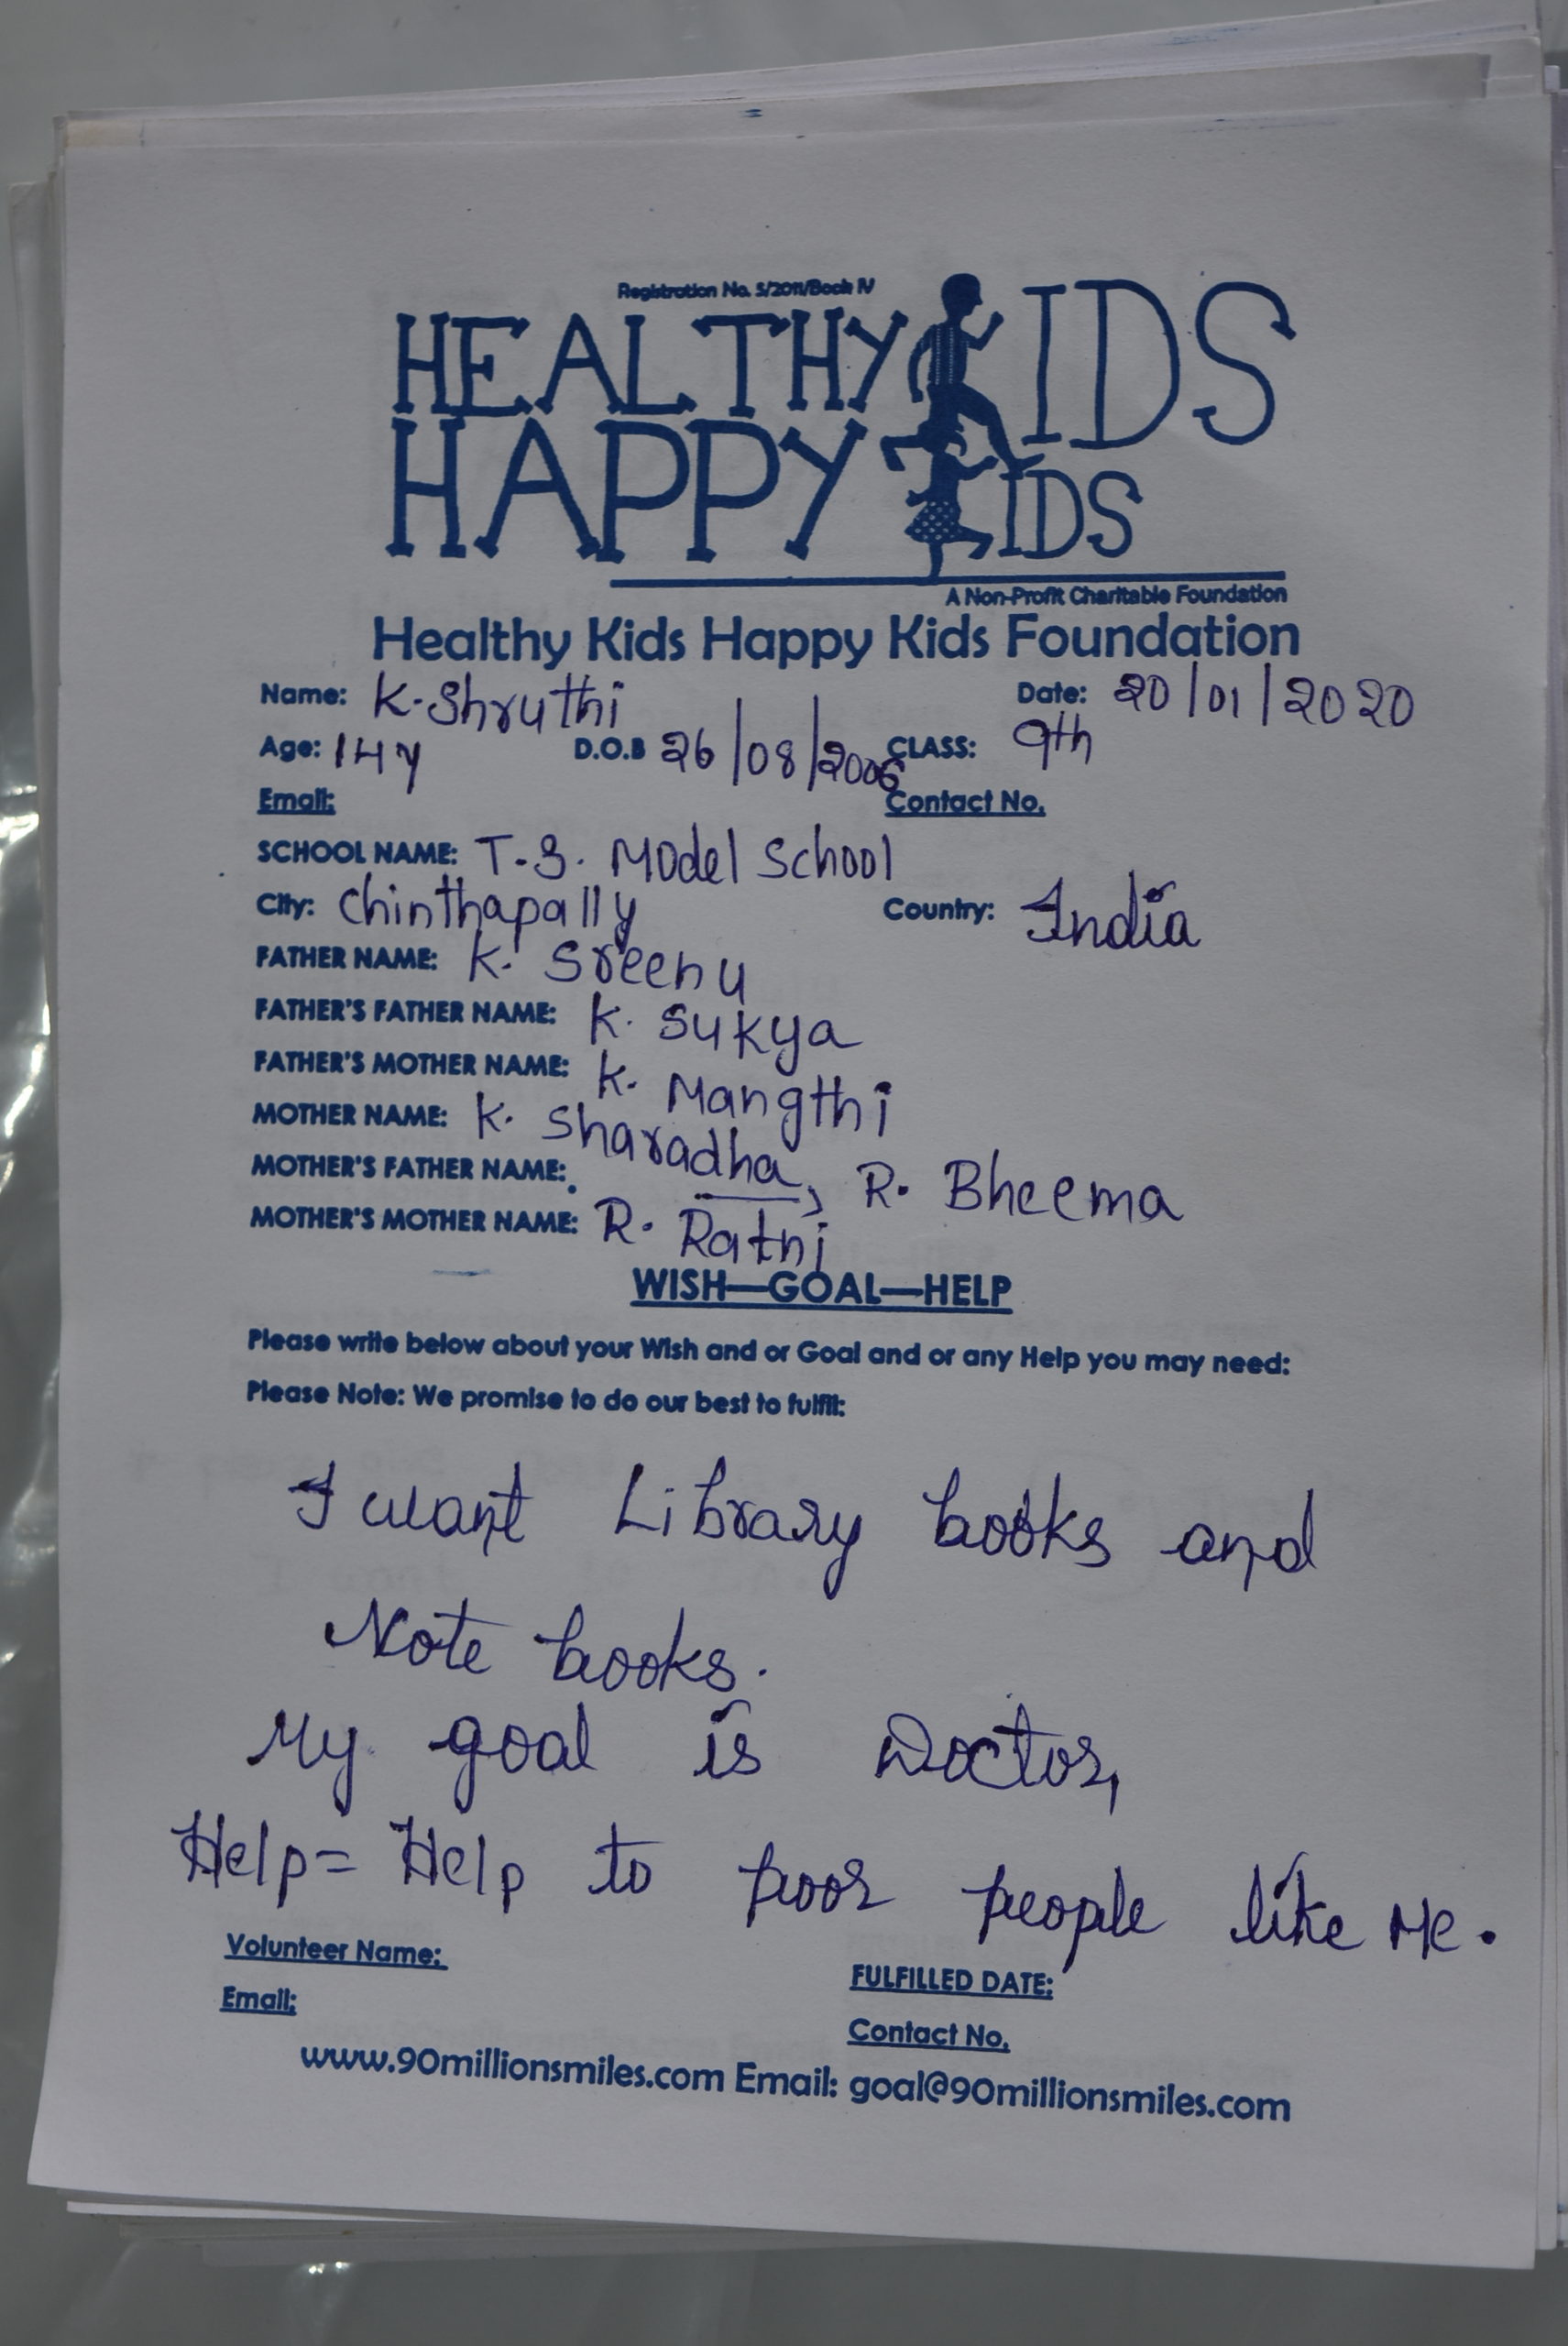 Registration No. 5/2011/Book IV
HEALTHY KIDS
HAPPY KIDS
A Non-Profit Charitable Foundation
Healthy Kids Happy Kids Foundation
Name: K. Shruthi Date: 20/01/2020
Age: 14 y D.O.B 26/08/2006 CLASS: 9th
Email: Contact No.
SCHOOL NAME: T.S. Model School
City: Chinthapally Country: India
FATHER NAME: K. Sreenu
FATHER'S FATHER NAME: K. Sukya
FATHER'S MOTHER NAME: K. Mangthi
MOTHER NAME: K. Sharadha,
MOTHER'S FATHER NAME: R. Bheema
MOTHER'S MOTHER NAME: R. Rathi
WISH—GOAL—HELP
Please write below about your Wish and or Goal and or any Help you may need:
Please Note: We promise to do our best to fulfil:
I want Library books and
Note books.
My goal is Doctor,
Help = Help to poor people like Me.
Volunteer Name: FULFILLED DATE:
Email: Contact No.
www.90millionsmiles.com Email: goal@90millionsmiles.com